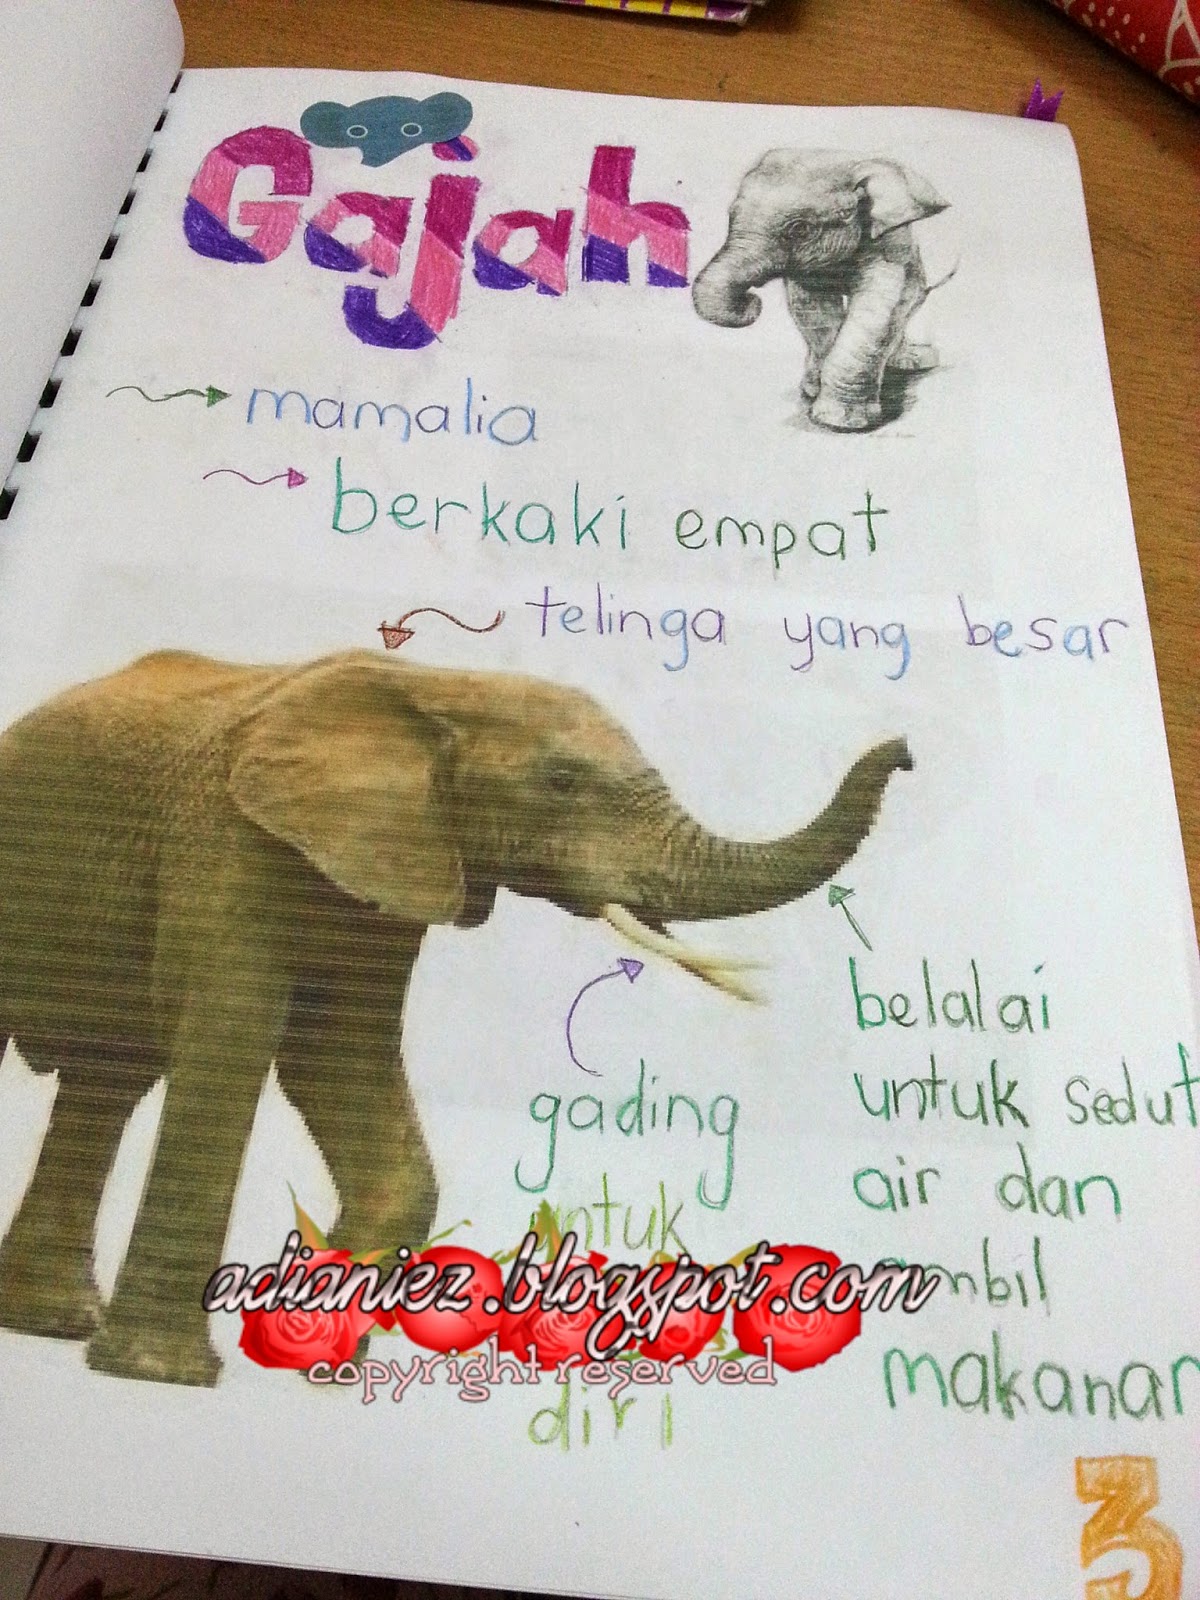 Gajah
mamalia
berkaki empat
telinga yang besar
belalai
untuk sedut
air dan
ambil
makanan
gading
untuk
diri
adianiez.blogspot.com
copyright reserved
3